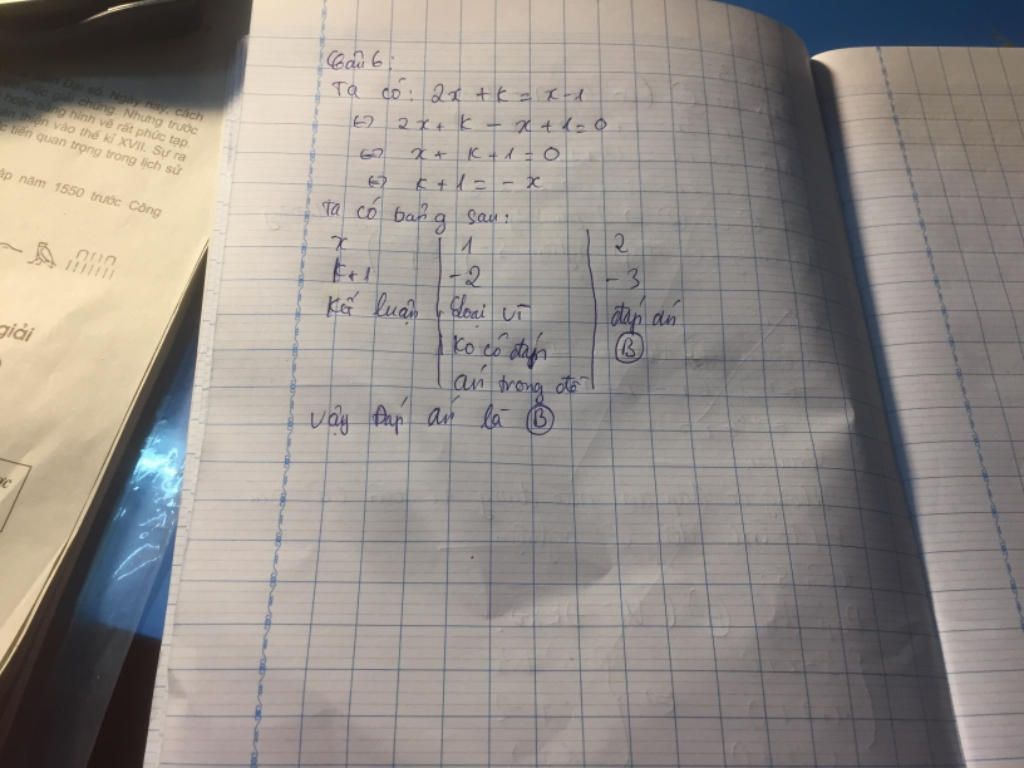 Đại số. Ngày nay, cách
chúng. Nhưng trước
hình vẽ rất phức tạp.
thêm vào thế kỉ XVII. Sự ra
tiến quan trọng trong lịch sử
năm 1550 trước Công
giải
Câu 6:
Ta có: 2x + k = x - 1
⇔ 2x + k - x + 1 = 0
⇔ x + k + 1 = 0
⇔ k + 1 = - x
Ta có bảng sau:
x | 1 | 2
k + 1 | -2 | - 3
Kết luận | Loại vì | đáp án
ko có đáp | B
án trong đề
Vậy Đáp án là B